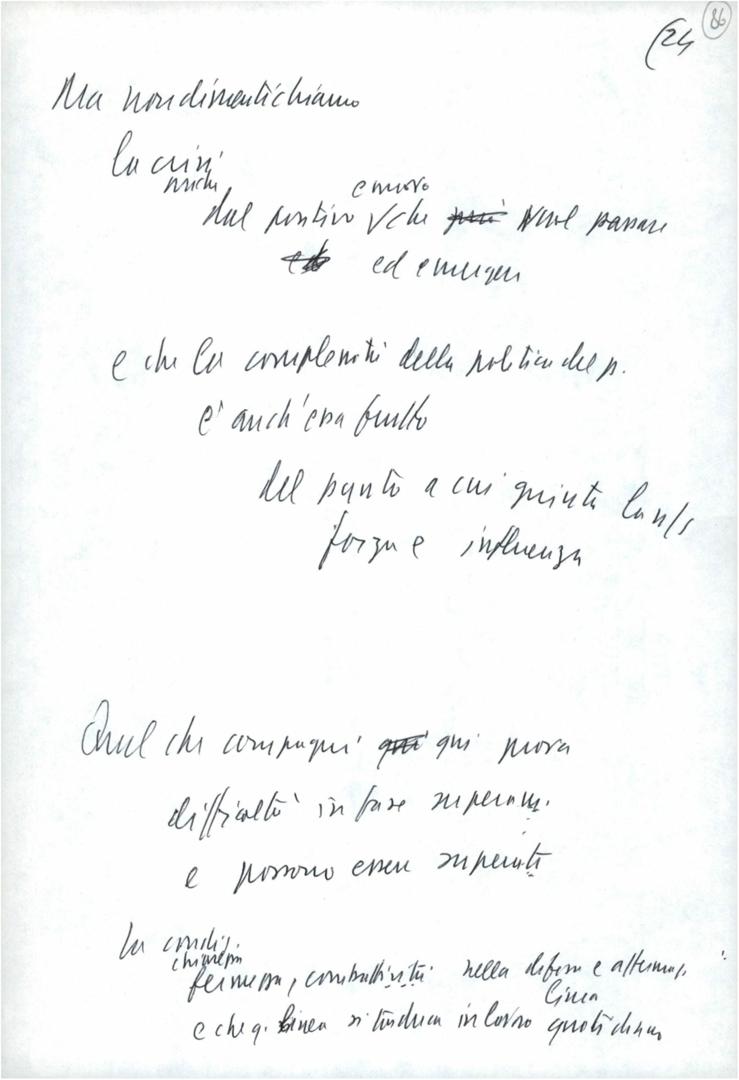 86
(24
Ma non dimentichiamo
la crisi
anche
e nuovo
dal positivo che può vuol passare
ed emergere
e che la complessità della politica del p.
è anch'essa frutto
del punto a cui giunta la n/s
forza e influenza
Quel che compagni qui prova
difficoltà in fase superam.
e possono essere superate
la condiz.
chiarezza
fermezza, combattività nella difesa e affermaz.
linea
e che q. linea si traduca in lavoro quotidiano